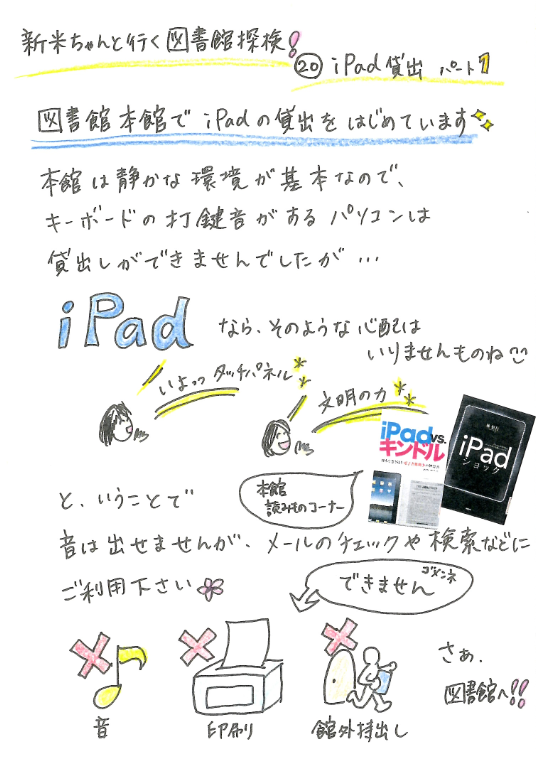 新米ちゃんと行く図書館探検!
⑳ iPad貸出 パート1
図書館本館でiPadの貸出をはじめています
本館は静かな環境が基本なので、
キーボードの打鍵音があるパソコンは
貸出しができませんでしたが…
iPad なら、そのような心配は
いりませんものね
いよっっ タッチパネル
文明の力
iPad vs.
キンドル
iPad
ショック
本館
読みものコーナー
と、いうことで
音は出せませんが、メールのチェックや検索などに
ご利用下さい
できません ゴメンネ
音
印刷
館外持出し
さぁ、
図書館へ!!